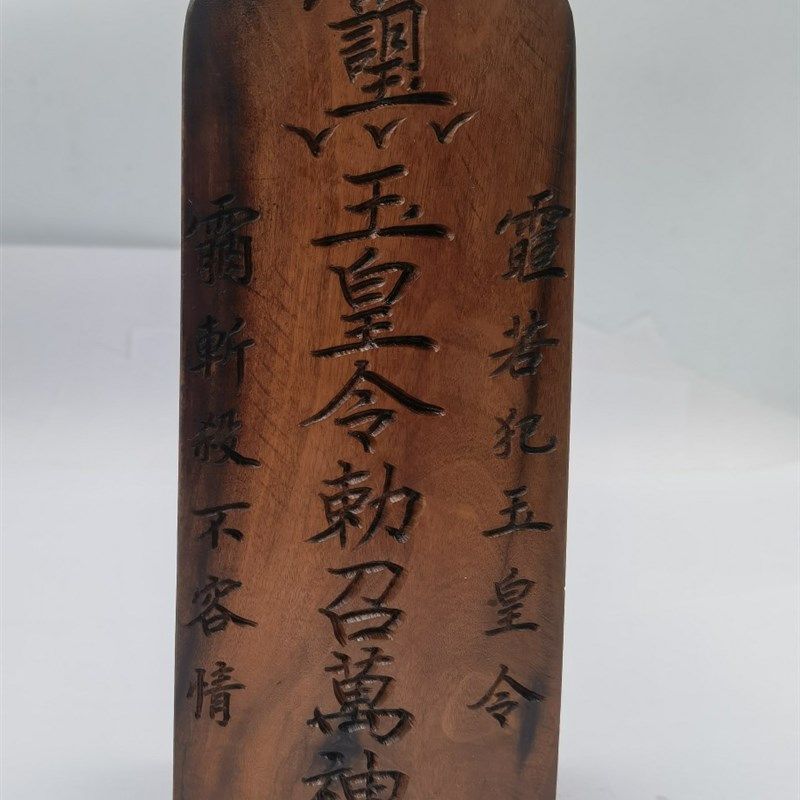 若犯玉皇令
玉皇令勅召萬神
斬殺不容情